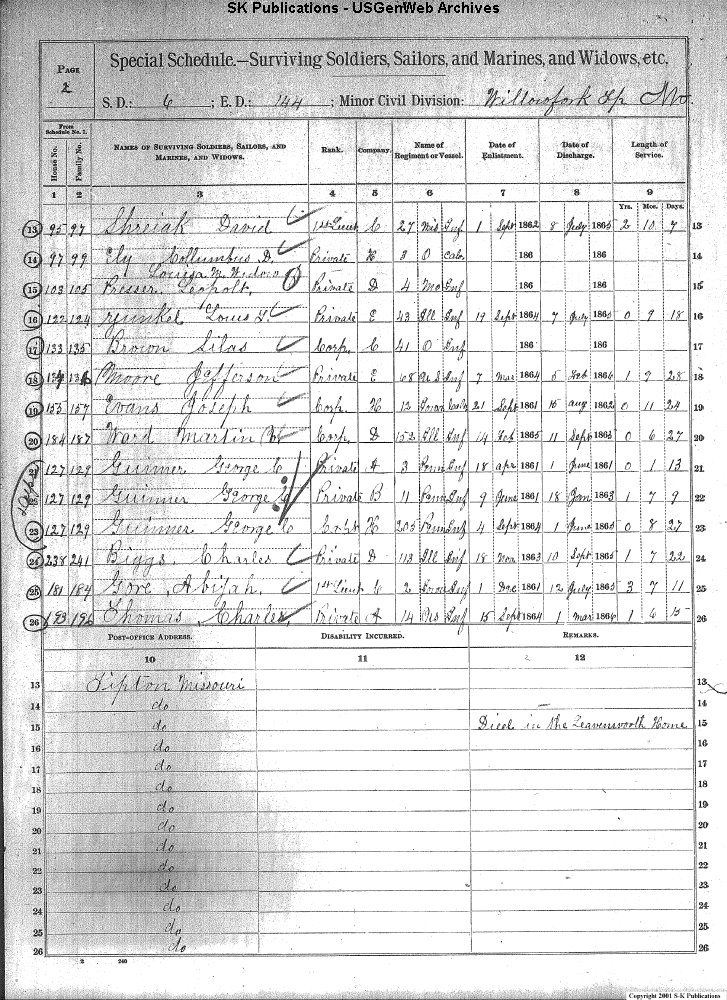 SK Publications - USGenWeb Archives
PAGE
2
Special Schedule.—Surviving Soldiers, Sailors, and Marines, and Widows, etc.
S. D.: 6 ; E. D.: 144 ; Minor Civil Division: Willowfork Tp Mo.
From Schedule No. 1.
House No. Family No. NAMES OF SURVIVING SOLDIERS, SAILORS, AND MARINES, AND WIDOWS. Rank. Company. Name of Regiment or Vessel. Date of Enlistment. Date of Discharge. Length of Service.
1 2 3 4 5 6 7 8 9
Yrs. Mos. Days.
13 95 97 David 1st Lieut C 27 Inf 1 Sept 1862 8 July 1865 2 10 7 13
14 97 99 Ely Collumbus D. Private H 3 O Cab. 186 186 14
Louisa M. Widow
15 103 105 Presser Leopolt, Private D 4 Mo Inf 186 186 15
16 122 124 Louis F. Private E 43 Ill Inf 19 Sept 1864 7 July 1865 0 9 18 16
17 133 135 Brown Silas Corp. C 41 O Inf 186 186 17
18 Moore Jefferson Private E 68 U S Inf 7 Mar 1864 5 Feb 1866 1 9 28 18
19 155 157 Evans Joseph Corp. H 12 21 Sept 1861 15 Aug 1862 0 11 24 19
20 184 187 Ward Martin Corp D 152 Ill Inf 14 Feb 1865 11 Sept 1865 0 6 27 20
21 127 129 George C Private A 3 Penn Inf 18 Apr 1861 1 June 1861 0 1 13 21
22 127 129 George C Private B 11 Penn Inf 9 June 1861 18 Jan 1863 1 7 9 22
23 127 129 George C Capt H 205 Penn Inf 4 Sept 1864 1 June 1865 0 8 27 23
24 238 241 Biggs, Charles Private D 113 Ill Inf 18 Nov 1863 10 Sept 1865 1 7 22 24
25 181 184 Gore, Abijah, 1st Lieut C 2 Inf 1 Dec 1861 12 July 1865 3 7 11 25
26 193 196 Thomas, Charles Private A 14 Inf 15 Sept 1864 1 Mar 1866 1 6 15 26
POST-OFFICE ADDRESS. DISABILITY INCURRED. REMARKS.
10 11 12
13 Tipton Missouri 13
14 do 14
15 do Died in the Leavenworth Home 15
16 do 16
17 do 17
18 do 18
19 do 19
20 do 20
21 do 21
22 do 22
23 do 23
24 do 24
25 do 25
26 do 26
2 240
Copyright 2001 S-K Publications